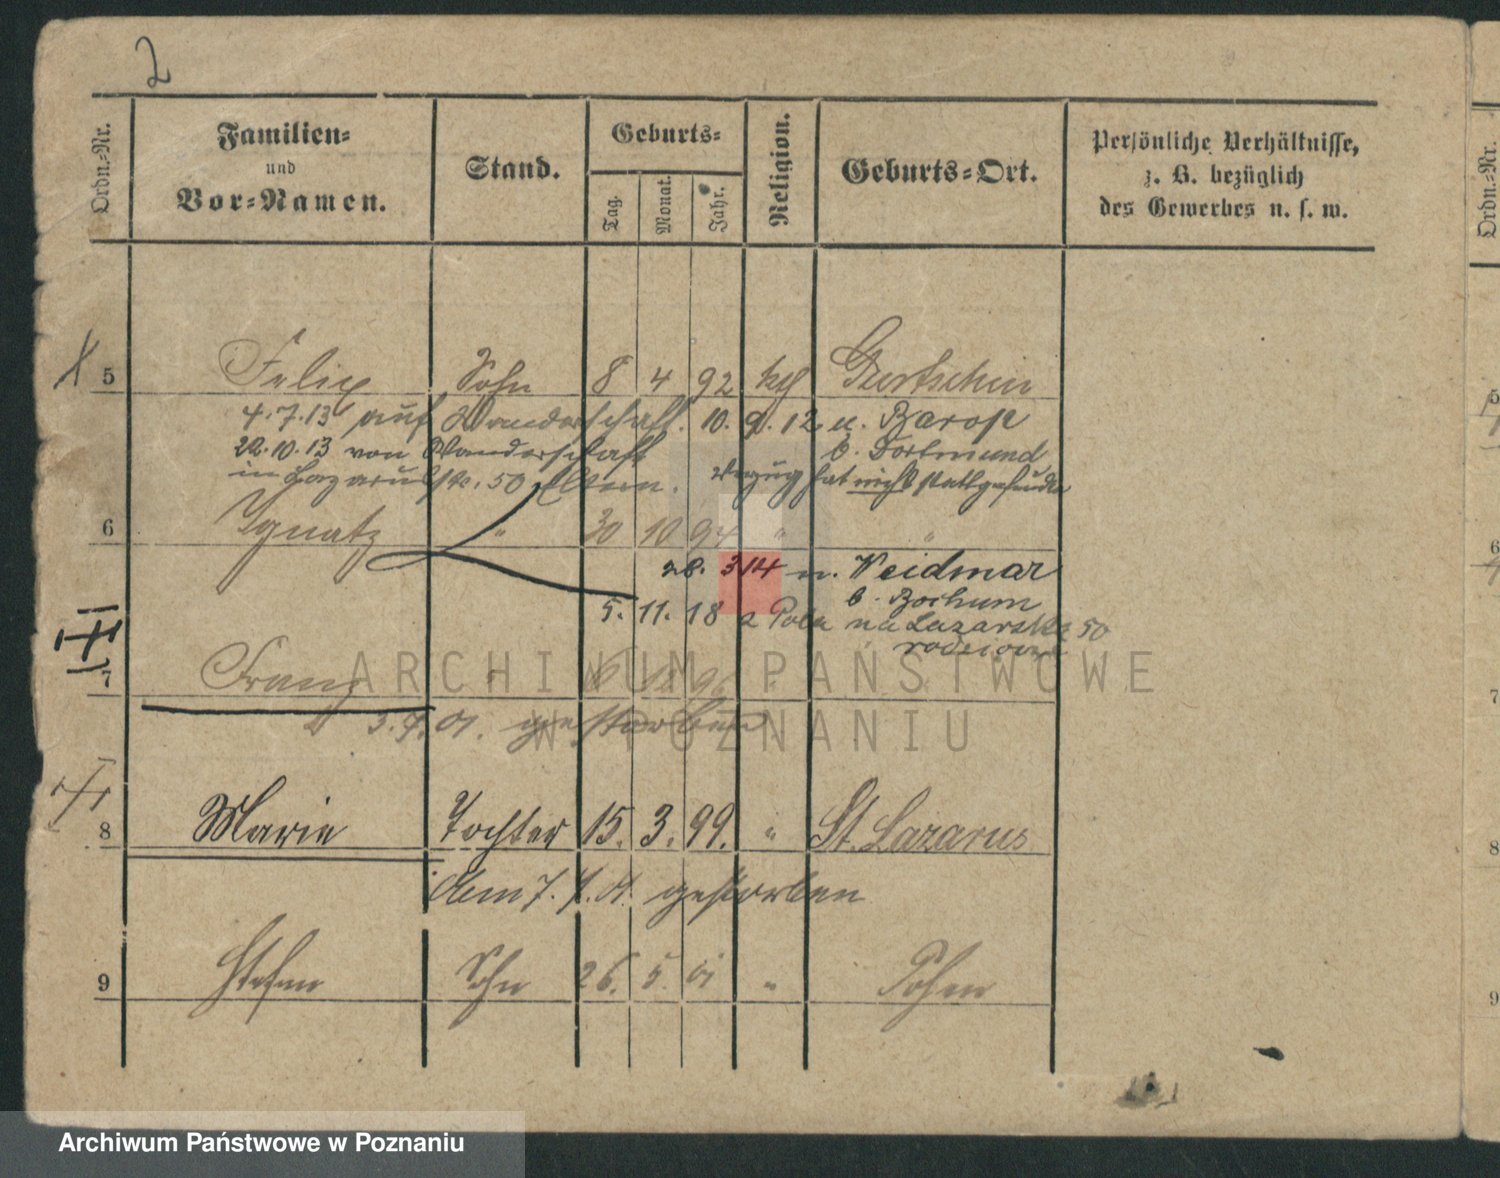 2
Ordn.-Nr.
Familien-
und
Vor-Namen.
Stand.
Geburts-
Tag.
Monat.
Jahr.
Religion.
Geburts-Ort.
Persönliche Verhältnisse,
z. B. bezüglich
des Gewerbes u. s. w.
Ordn.-Nr.
5 Felix Sohn 8 4 92 kth
4.7.13 auf Wanderschaft. 10. 9. 12. n. Barop
22.10.13 von Wanderschaft b. Dortmund
in Lazarusstr. 50 Eltern. Verzug hat nicht stattgefunden
6 Ignatz " 30 10 94 " "
26. 3 14 n. Weidmar
b. Bochum
5. 11. 18 z Pola na Lazarska 50
7 Franz
3.7.01. gestorben
ARCHIWUM PAŃSTWOWE
W POZNANIU
8 Marie Tochter 15. 3. 99. " St. Lazarus
am 7. 7. 01. gestorben
9 Stefan Sohn 26. 5. 01 " Posen
5
6
7
8
9
Archiwum Państwowe w Poznaniu